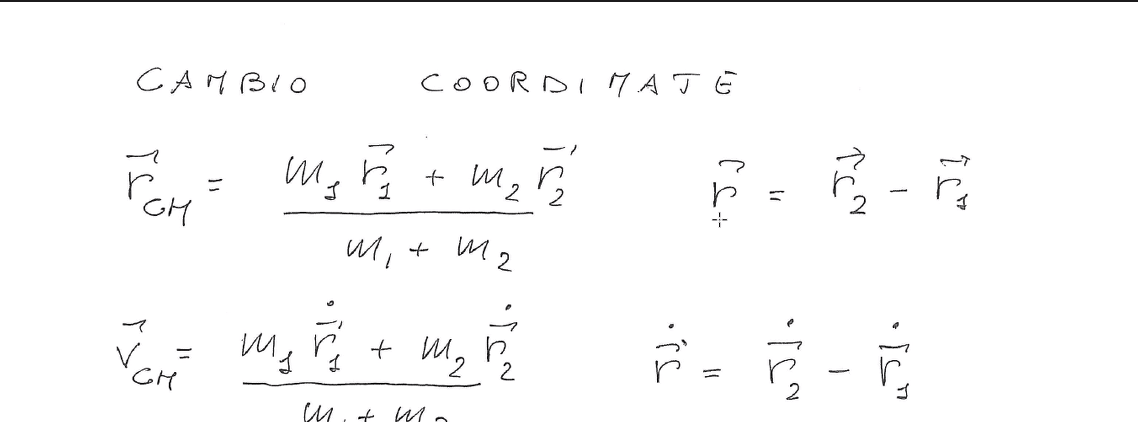 CAMBIO COORDINATE
$\vec{r}_{CM} = \frac{m_1 \vec{r}_1 + m_2 \vec{r}_2}{m_1 + m_2}$ $\vec{r} = \vec{r}_2 - \vec{r}_1$
$\vec{v}_{CM} = \frac{m_1 \dot{\vec{r}}_1 + m_2 \dot{\vec{r}}_2}{m_1 + m_2}$ $\dot{\vec{r}} = \dot{\vec{r}}_2 - \dot{\vec{r}}_1$